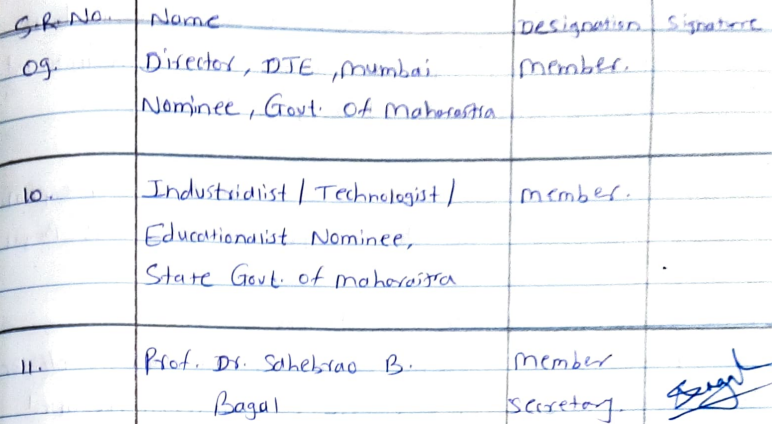 S.R. No. Name Designation Signature
09. Director, DTE, Mumbai member.
Nominee, Govt. of Maharastra
10. Industrialist / Technologist / member.
Educationalist Nominee,
State Govt. of maharaitra
11. Prof. Dr. Sahebrao B. member
Bagal secretary.